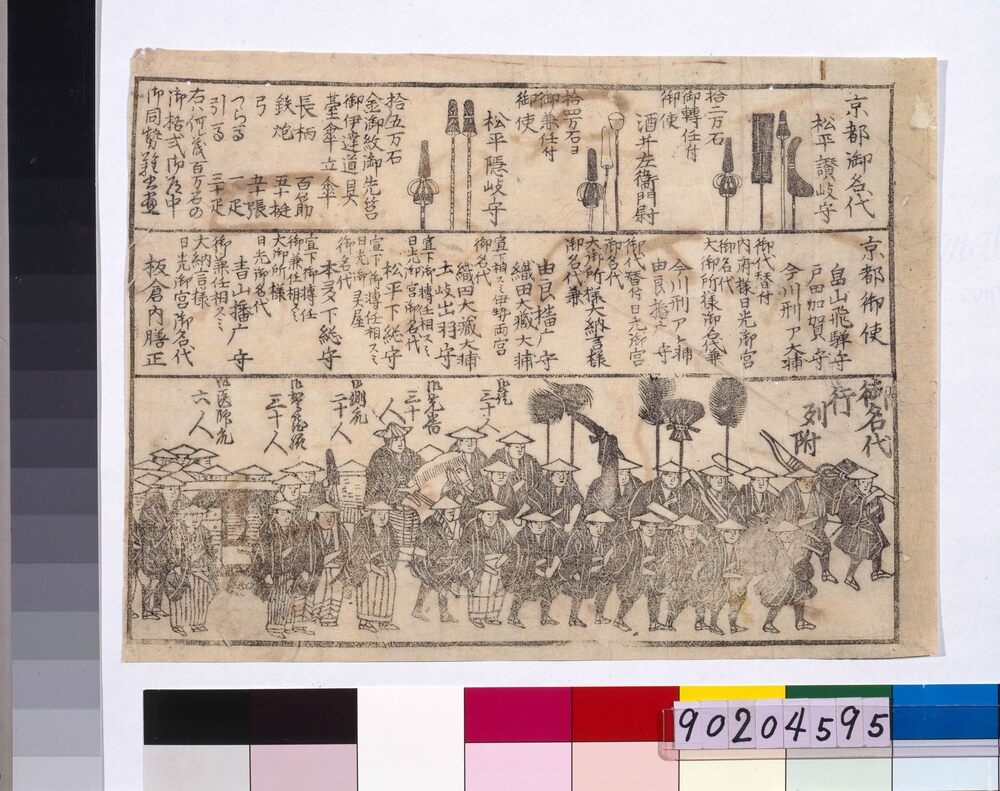 京都御名代
松平讃岐守
拾二万石
御轉任付
御使
酒井左衛門尉
拾四万石ヨ
御兼任付
御使
松平隠岐守
拾五万石
金御紋御先筥
御伊達道具
臺傘立傘
長柄 百筋
鉄炮 五十挺
弓 五十張
つる 一疋
引る 三十疋
右ハ何茂百万石の
御格式
京都御使
畠山飛騨守
戸田加賀守
今川刑ア大輔
御代替付
内府様日光御宮
御名代
大御所様御名代兼
今川刑ア大輔
由良播广守
御代替付日光御宮
御名代
大御所様大納言様
御名代兼
由良播广守
織田大蔵大輔
宣下相スミ伊勢両宮
御名代
織田大蔵大輔
土岐出羽守
宣下御轉任相スミ
日光御宮御名代
松平下総守
宣下御轉任相スミ
日光御霊屋
御名代
本多下総守
宣下御轉任
御兼任相スミ
大御所様
日光御名代
青山播广守
御兼任相スミ
大納言様
日光御宮御名代
板倉内膳正
御名代
行列附
三十人
御先番
三十人
御側衆
二十人
三十人
御医師衆
六人
90204595